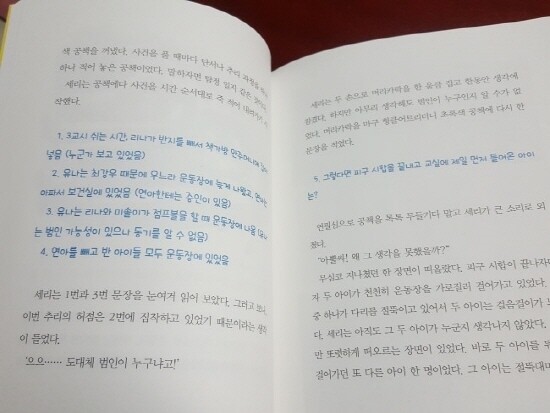 색 공책을 꺼냈다. 사건을 풀 때마다 단서나 추리 과정을
하나 적어 놓은 공책이었다. 말하자면 탐정 일지 같은
세리는 공책에다 사건을 시간 순서대로 죽 적어 내려가
작했다.
1. 3교시 쉬는 시간, 리나가 반지를 빼서 책가방
넣음 (누군가 보고 있었음)
2. 유나는 최강우 때문에 우느라 운동장에 늦게 나왔고, 연아는
아파서 보건실에 있었음 (연아한테는 증인이 있음)
3. 유나는 리나와 미솔이가 점프볼을 할 때 운동장에 나옴
는 범인 가능성이 있으나 동기를 알 수 없음)
4. 연아를 빼고 반 아이들 모두 운동장에 있었음
세리는 1번과 3번 문장을 눈여겨 읽어 보았다. 그러고 보니,
이번 추리의 허점은 2번에 집착하고 있었기 때문이라는 생각
이 들었다.
'으으…… 도대체 범인이 누구냐고!'
세리는 두 손으로 머리카락을 한 움큼 잡고 한동안 생각에
잠겼다. 하지만 아무리 생각해도 범인이 누구인지 알 수가 없
었다. 머리카락을 마구 헝클어트리더니 초록색 공책에 다시 한
문장을 적었다.
5. 그렇다면 피구 시합을 끝내고 교실에 제일 먼저 들어온 아이
는?
연필심으로 공책을 톡톡 두들기다 말고 세리가 큰 소리로 외
쳤다.
"아뿔싸! 왜 그 생각을 못했을까?"
무심코 지나쳤던 한 장면이 떠올랐다. 피구 시합이 끝나자마
자 두 아이가 천천히 운동장을 가로질러 걸어가고 있었다.
중 하나가 다리를 절뚝이고 있어서 두 아이는 걸음걸이가
다. 세리는 아직도 그 두 아이가 누군지 생각나지 않았다.
만 또렷하게 떠오르는 장면이 있었다. 바로 두 아이를
걸어가던 또 다른 아이 한 명이었다. 그 아이는